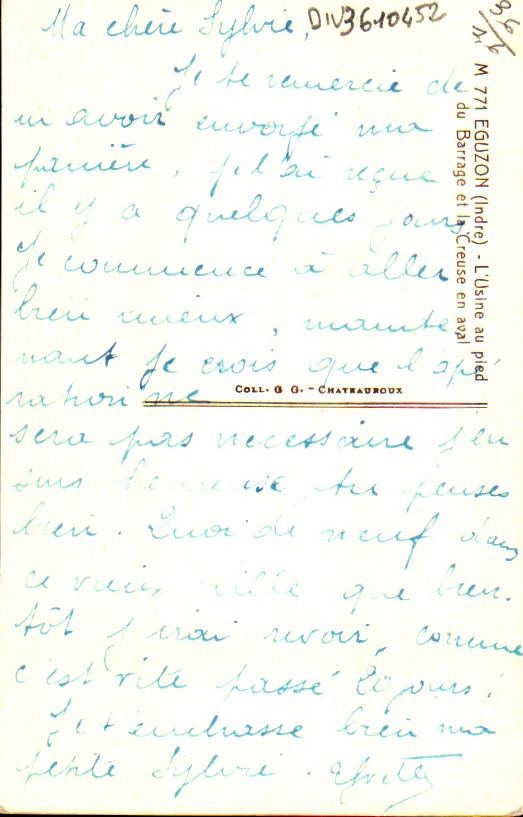 Ma chère Sylvie,
DIV3610452
36/
M 771 EGUZON (Indre) - L'Usine au pied
du Barrage et la Creuse en aval
Je te remercie de
m'avoir envoyé ma
panière, je l'ai reçue
il y a quelques jours
Je commence à aller
bien mieux, mainte
nant je crois que l'opé
ration ne
COLL. G G. - CHATEAUROUX
sera pas nécessaire j'en
suis heureuse tu penses
bien. Quoi de neuf dans
ce vieux ville que bien-
tôt j'irai revoir, comme
c'est vite passé 20 jours!
Je t'embrasse bien ma
petite Sylvie. Yvette